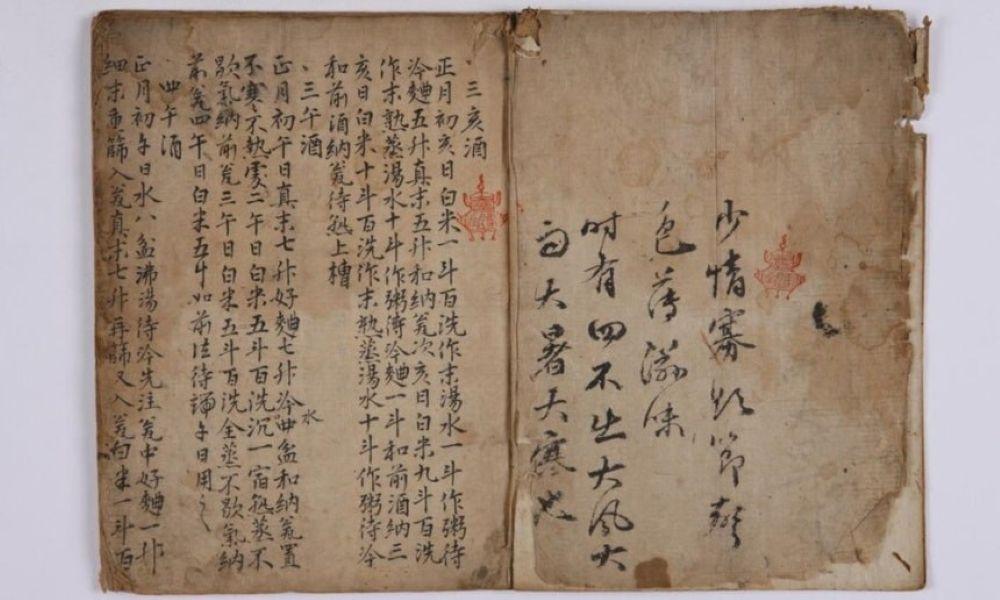 少情寡欲節聲
色薄滋味
时有四不出大风大
雨大暑大寒也
三亥酒
正月初亥日白米一斗百洗作末湯水一斗作粥待
冷麯五升真末五升和納瓮次亥日白米九斗百洗
作末熟蒸湯水十斗作粥待冷麯一斗和前酒納三
亥日白米十斗百洗作末熟蒸湯水十斗作粥待冷
和前酒納瓮待熟上槽
三午酒
正月初午日真末七升好麯七升冷水四盆和納瓮置
不寒不熱處二午日白米五斗百洗沉一宿熟蒸不
歇氣納前瓮三午日白米五斗百洗全蒸不歇氣納
前瓮四午日白米五斗如前法待端午日用之
四午酒
正月初午日水八盆沸湯待冷先注瓮中好麯一升
細末布篩入瓮真末七升再篩又入瓮白米一斗百